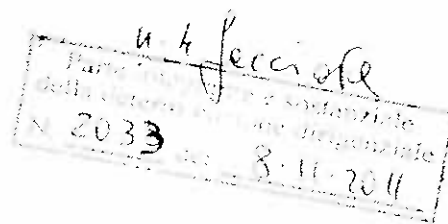 n. 4 facciate
Parte integrante e sostanziale
della determinazione dirigenziale
N. 2033 del 8.11.2011